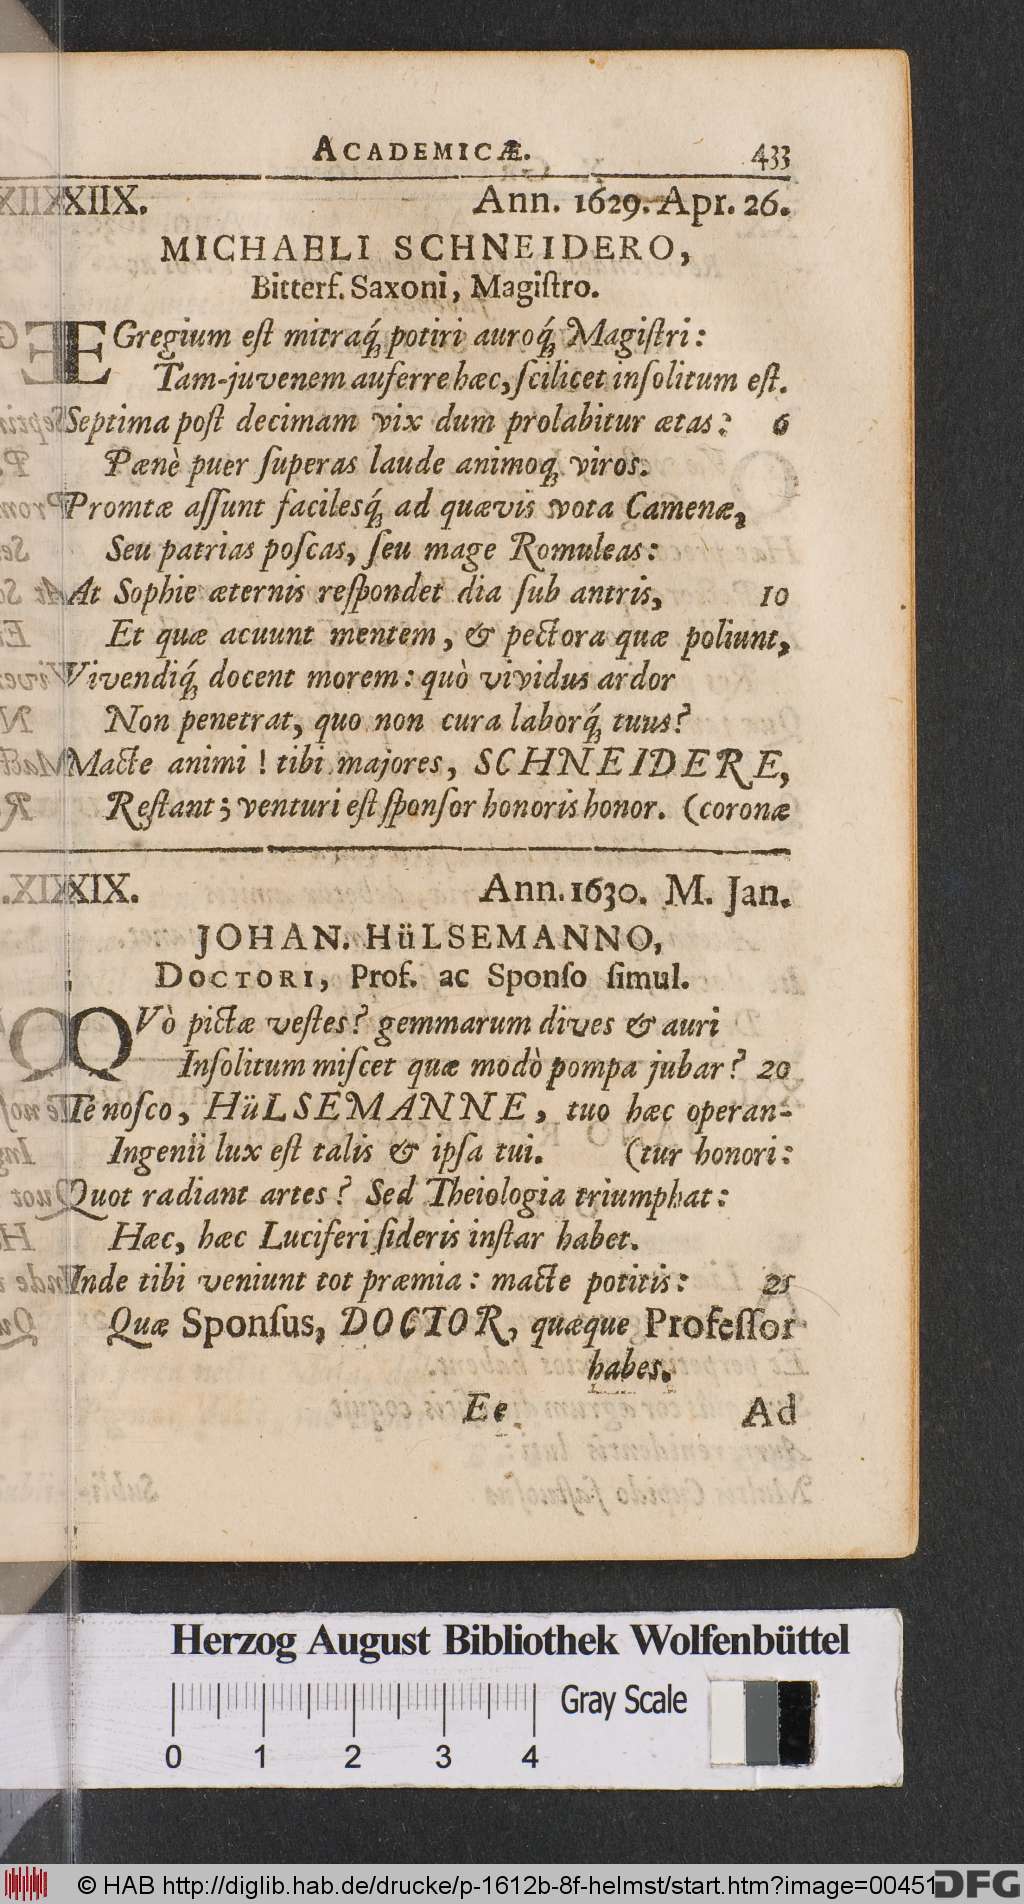 ACADEMICÆ. 433
XIIX. Ann. 1629. Apr. 26.
MICHAELI SCHNEIDERO,
Bitterf. Saxoni, Magiſtro.
EGregium eſt mitraq́; potiri auroq́; Magiſtri:
Tam-juvenem auferre hæc, ſcilicet inſolitum eſt.
Septima poſt decimam vix dum prolabitur ætas: 6
Pænè puer ſuperas laude animoq; viros.
Promtæ aſſunt facilesq́; ad quævis vota Camenæ,
Seu patrias poſcas, ſeu mage Romuleas:
At Sophie æternis reſpondet dia ſub antris, 10
Et quæ acuunt mentem, & pectora quæ poliunt,
Vivendiq́; docent morem: quò vividus ardor
Non penetrat, quo non cura laborq́; tuus?
Macte animi! tibi majores, SCHNEIDERE,
Reſtant; venturi eſt ſponſor honoris honor. (coronæ
XIX. Ann. 1630. M. Jan.
JOHAN. HüLSEMANNO,
DOCTORI, Prof. ac Sponſo ſimul.
QVò pictæ veſtes? gemmarum dives & auri
Inſolitum miſcet quæ modò pompa jubar? 20
Te noſco, HüLSEMANNE, tuo hæc operan-
Ingenii lux eſt talis & ipſa tui. (tur honori:
Quot radiant artes? Sed Theiologia triumphat:
Hæc, hæc Luciferi ſideris inſtar habet.
Inde tibi veniunt tot præmia: macte potitis: 25
Quæ Sponſus, DOCTOR, quæque Profeſſor
habes.
Ee Ad
Herzog August Bibliothek Wolfenbüttel
Gray Scale
0 1 2 3 4
© HAB http://diglib.hab.de/drucke/p-1612b-8f-helmst/start.htm?image=00451
DFG